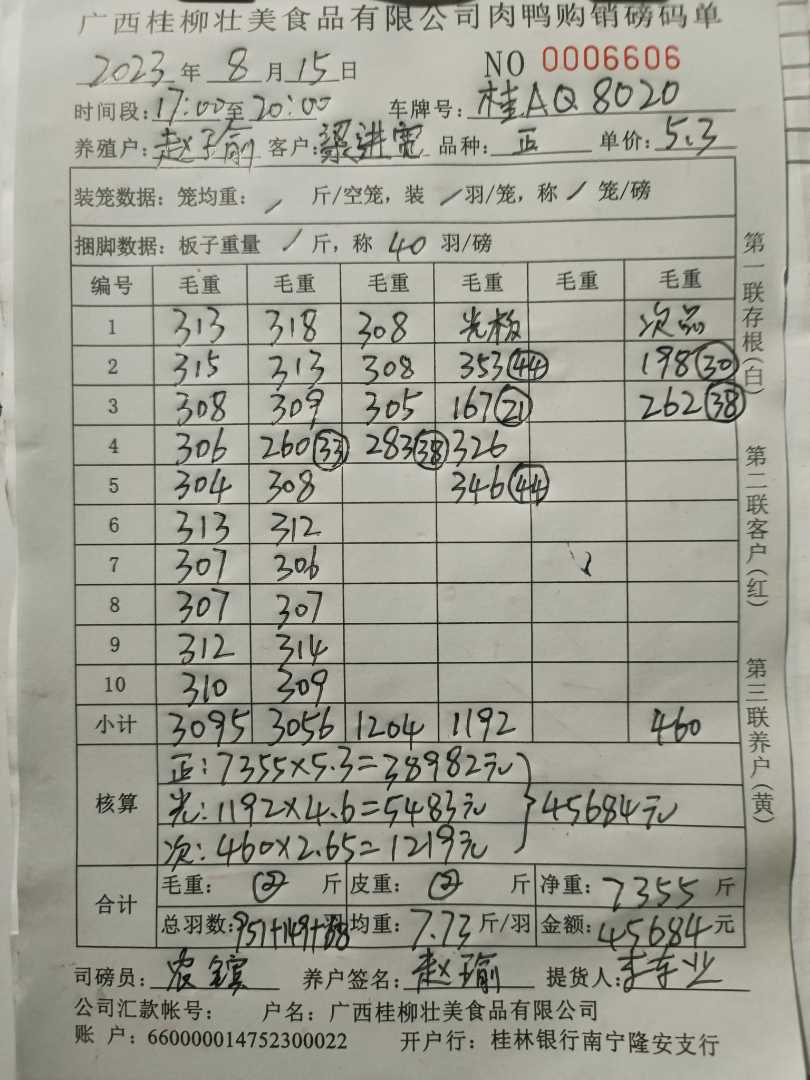 广西桂柳壮美食品有限公司肉鸭购销磅码单
2023年8月15日 NO 0006606
时间段:17:00至20:00 车牌号:桂AQ8020
养殖户:赵子瑜 客户:梁进宽 品种:正 单价:5.3
装笼数据:笼均重: / 斤/空笼,装 / 羽/笼,称 / 笼/磅
捆脚数据:板子重量 / 斤,称 40 羽/磅
编号 毛重 毛重 毛重 毛重 毛重 毛重
1 313 318 308 光板 次品
2 315 313 308 353(44) 198(30)
3 308 309 305 167(21) 262(38)
4 306 260(33) 283(38) 326
5 304 308 346(44)
6 313 312
7 307 306
8 307 307
9 312 314
10 310 309
小计 3095 3056 1204 1192 460
核算 正:7355×5.3=38982元
光:1192×4.6=5483元 }45684元
次:460×2.65=1219元
合计 毛重: 斤 皮重: 斤 净重:7355斤
总羽数:951+149+68 均重:7.73斤/羽 金额:45684元
司磅员: 养户签名:赵瑜 提货人:
公司汇款帐号: 户名:广西桂柳壮美食品有限公司
账 户:660000014752300022 开户行:桂林银行南宁隆安支行
第一联存根(白)
第二联客户(红)
第三联养户(黄)